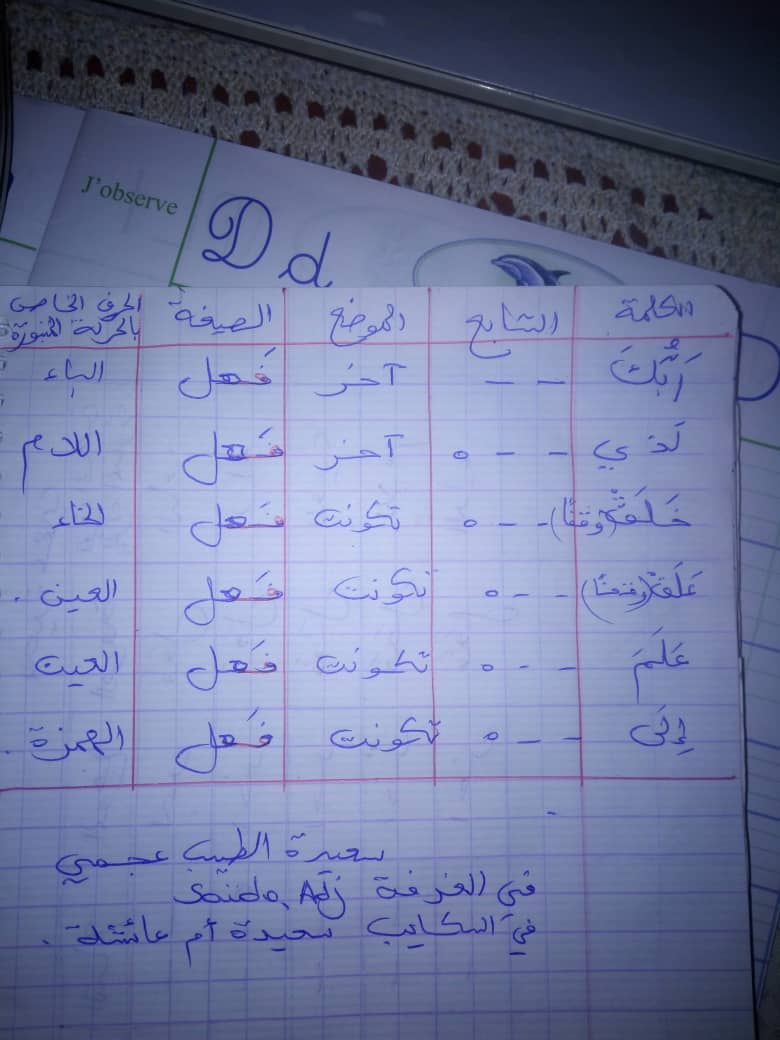 J'observe
D d
الكلمة التتابع الموضع الصيغة الحرف الخاص بالحركة المنبورة
رَبُّكَ - - آخر فَعل الباء
لَذي - - ه آخر فَعل اللام
خَلَقَ (وقفًا) - - ه تكونت فَعل الخاء
عَلَقْ (وقفًا) - - ه تكونت فَعل العين .
عَلَمَ - - ه تكونت فَعل العين
إِلَى - - ه تكونت فَعل الهمزة .
سعيدة الطيب عجمي
في الغرفة Saida Adj
في السكايب سعيدة أم عائشة .